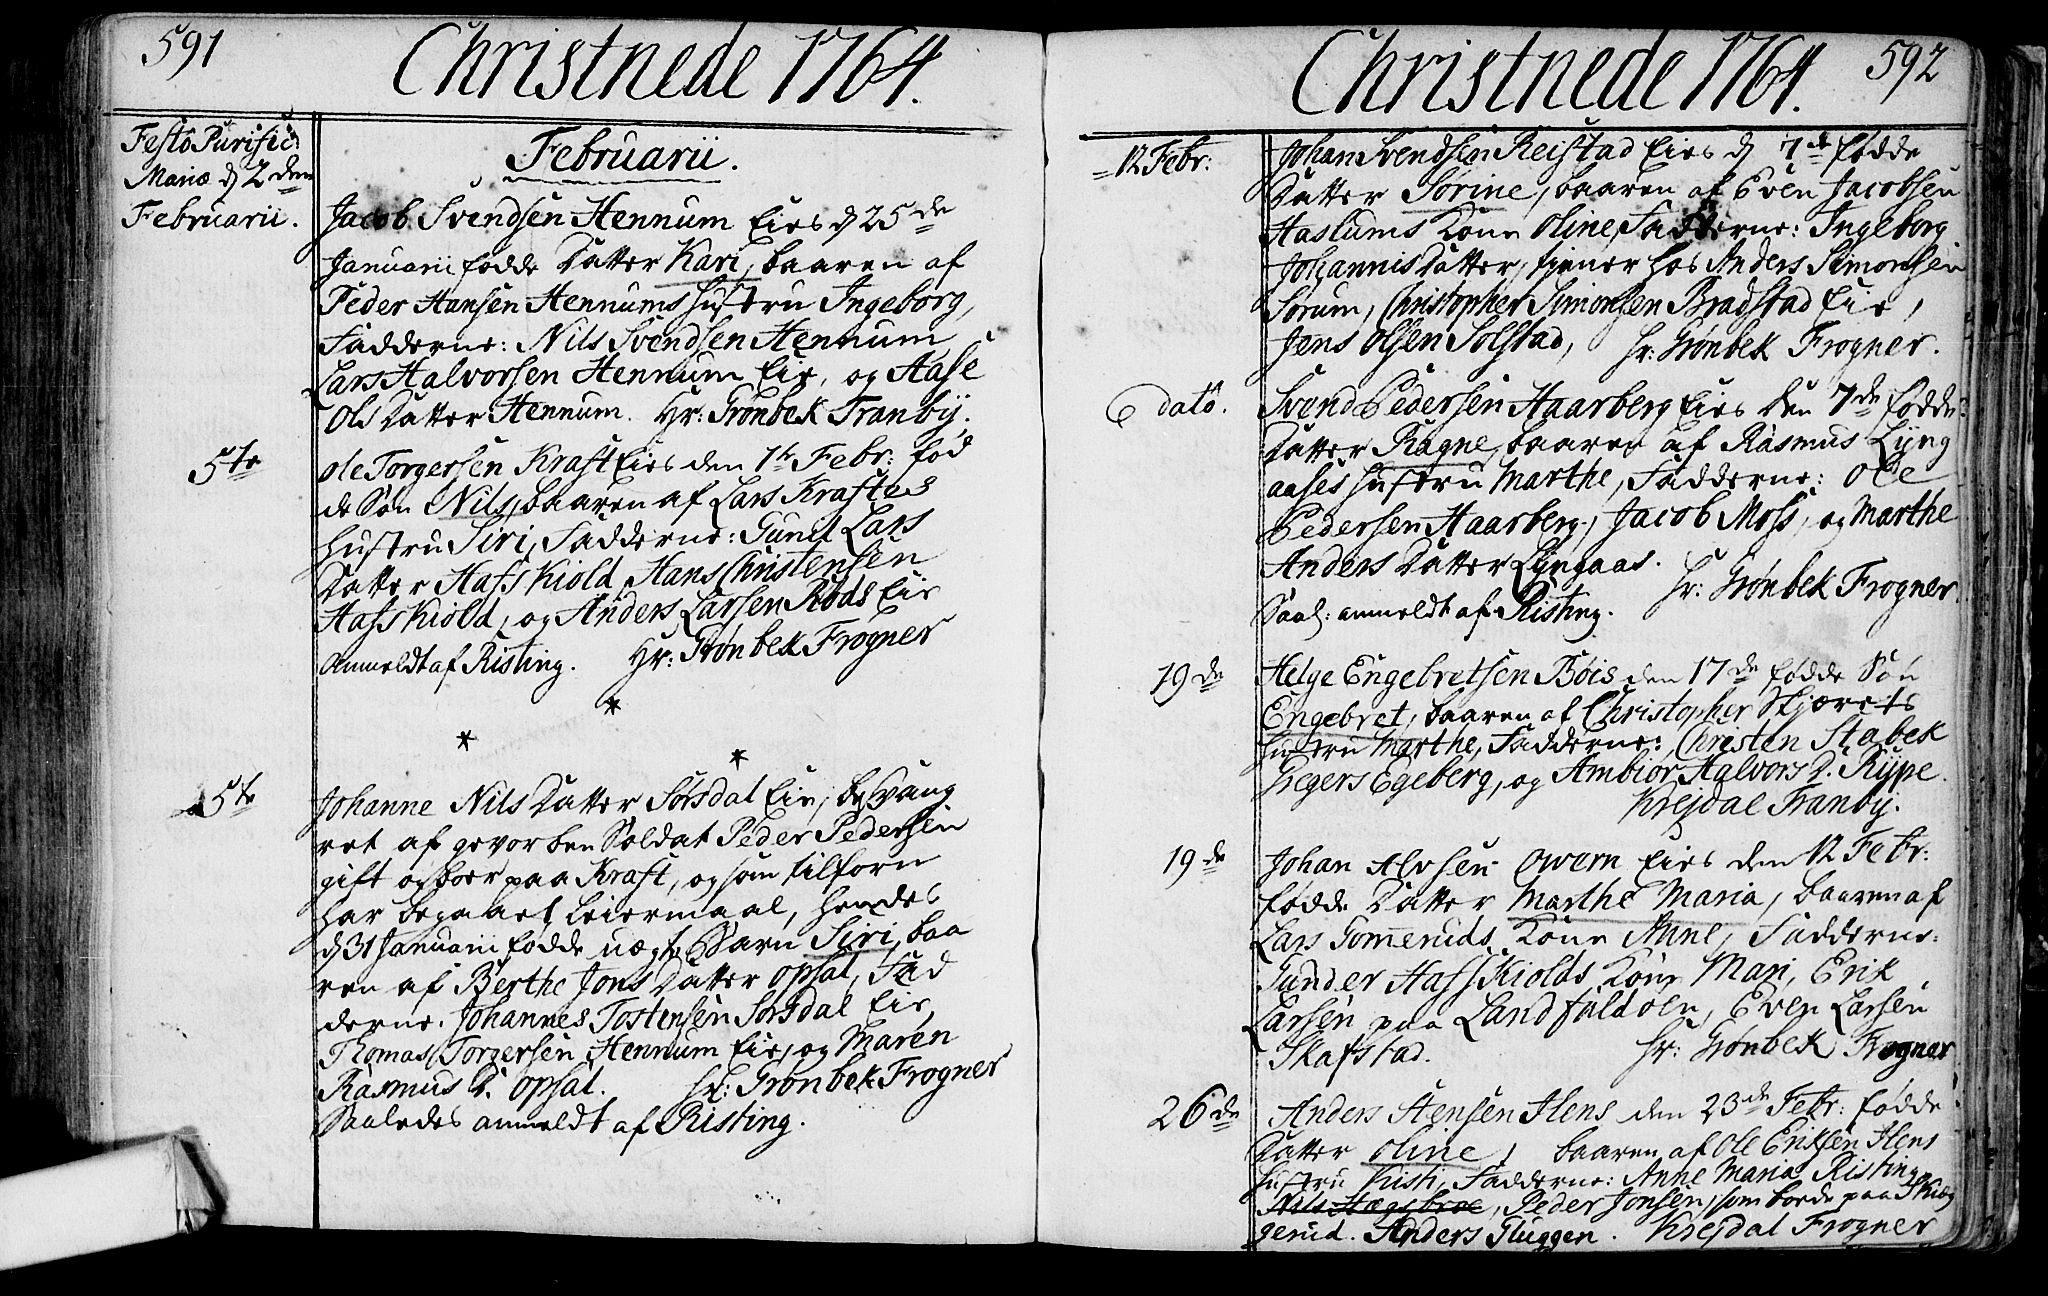 591
Christnede 1764.
Festô Purific:
Mariæ d 2den
Februarii.
Februarii.
Jacob Svendsen Hennum Eies d 25de
Januarii fødde Datter Kari, baaren af
Peder Hansen Hennums Hustru Ingeborg,
Fadderne: Nils Svendsen Hennum
Lars Halvorsen Hennum Eie, og Aase
Ols Datter Hennum. Hr: Grønbek Tranbÿ.
5te
Ole Torgersen Kraft Eies den 1te Febr: fød
de Søn Nils, baaren af Lars Kraftes
Hustru Siri, Fadderne: Guneld Lars
Datter Hafskiold, Hans Christensen
Hafskiold, og Anders Larsen Røds Eie
Anmeldt af Risting. Hr: Grønbek Frogner
* * *
5te
Johanne Nils Datter Sørsdal Eie, besvang
ret af gevorben Soldat Peder Pedersen
gift og boer paa Kraft, og som tilforn
har begaaet Leiermaal, hendes
d 31 Januarii fødde uægte Barn Siri, baa
ren af Berthe Jons Datter Opsal, Fad
derne. Johannes Tostensen Sørsdal Eie,
Thomas Torgersen Hennum Eie, og Maren
Rasmus D. Opsal. Hr: Grønbek Frogner
Saaledes anmeldt af Risting.
Christnede 1764. 592
12 Febr:
Johan Svendsen Reistad Eies d 7de fødde
Datter Sørine, baaren af Even Jacobsen
Haslums Kone Oline, Fadderne: Ingeborg
Johannis Datter, tiener hos Anders Simonsen
Sørum, Christopher Simonsen Bradstad Eie,
Jens Olsen Solstad, Hr: Grønbek Frogner.
E datô.
Svend Pedersen Haarberg Eies den 7de fødde
Datter Ragne, baaren af Rasmus Lÿng
aases Hustru Marthe, Fadderne: Ole
Pedersen Haarberg, Jacob Moss, og Marthe
Anders Datter Lÿngaas.
Hr: Grønbek Frogner.
Saal: anmeldt af Risting.
19de
Helge Engebretsen Bøis den 17de fødde Søn
Engebret, baaren af Christopher Skjærets
Hustru Marthe, Fadderne: Christen Stabek
Gregers Egeberg, og Ambior Halvors D. Rÿpe.
Krejdal Tranbÿ.
19de
Johan Alvsen Owern Eies den 12 Febr:
fødde Datter Marthe Maria, baaren af
Lars Gomeruds Kone Anne, Fadderne:
Gunder Hafskiolds Kone Mari, Erik
Larsen paa Landfaldøen, Even Larsen
Skafstad. Hr: Grønbek Frogner
26de
Anders Stensen Hens den 23de Febr: fødde
Datter Oline, baaren af Ole Eriksen Hens
Hustru Kisti, Fadderne: Anne Maria Risting
Nils Hægsbroe, Peder Jonsen, som boede paa Skiæg
gerud. Anders Gluggen. Krejdal Frogner